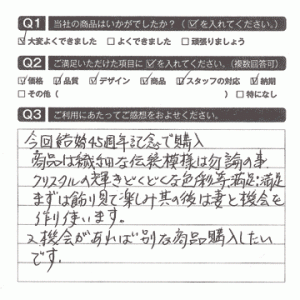 Q1 当社の商品はいかがでしたか？（☑を入れてください。）
☑大変よくできました □よくできました □頑張りましょう
Q2 ご満足いただけた項目に☑を入れてください。（複数回答可）
☑価格 ☑品質 ☑デザイン ☑商品 ☑スタッフの対応 ☑納期
□その他（ ） □特になし
Q3 ご利用にあたってご感想をおよせください。
今回結婚45周年記念で購入
商品は繊細な伝統模様は勿論の事
クリスタルの輝きどくどくな色彩等満足満足
まずは飾り見て楽しみ其の後は妻と機会を
作り使います。
又機会があれば別な商品購入したい
です。